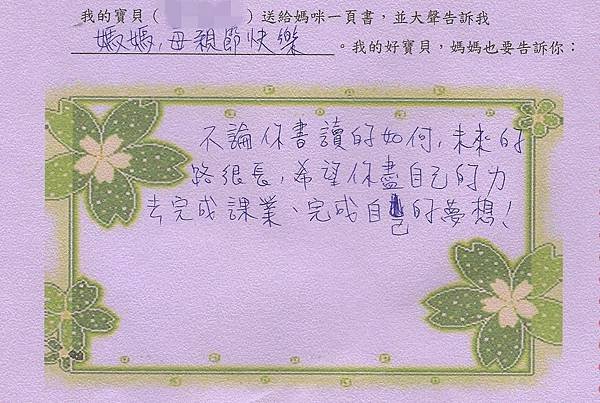 我的寶貝( )送給媽咪一頁書，並大聲告訴我
媽媽,母親節快樂。我的好寶貝，媽媽也要告訴你：
不論你書讀的如何,未來的
路很長,希望你盡自己的力
去完成課業、完成自己的夢想!